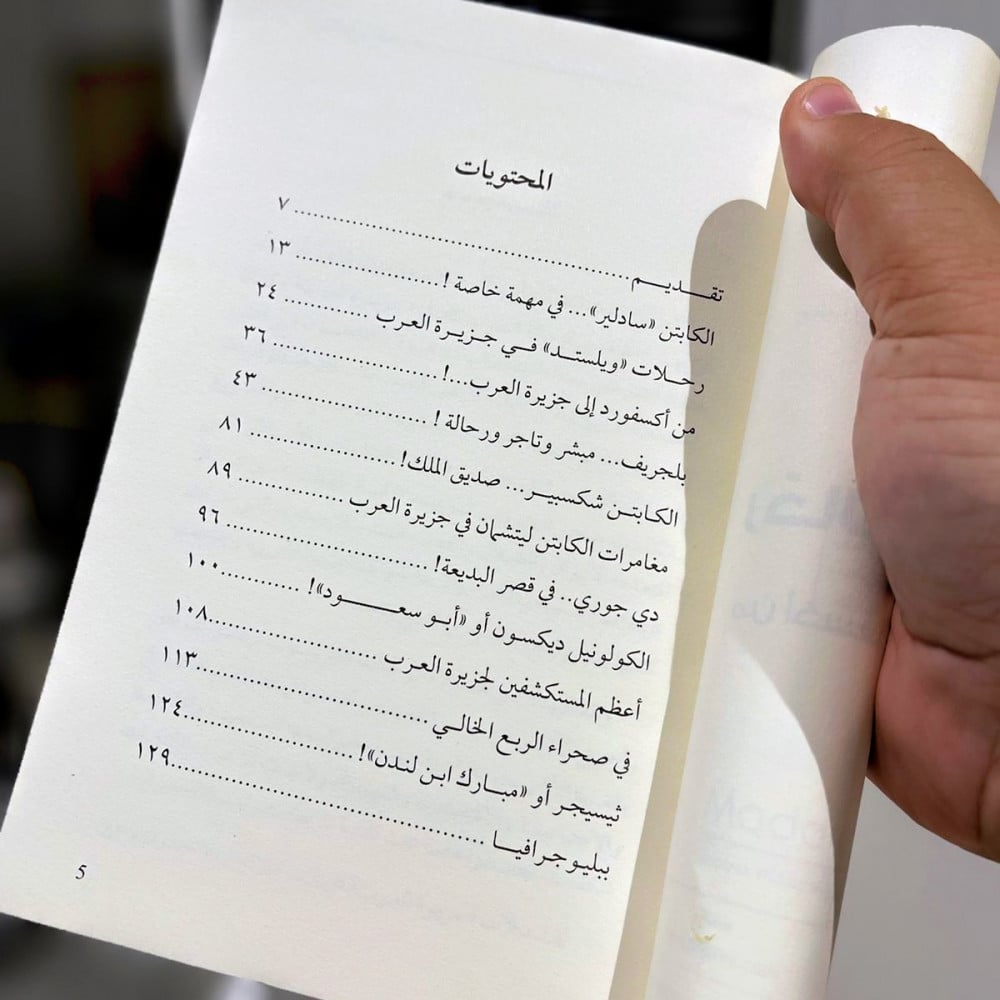 المحتويات
تقـــديـــم ........................................ ٧
الكابتن «سادلير»... في مهمة خاصة ! .................. ١٣
رحـلات «ويلستـد» فـي جـزيـرة العـرب ........... ٢٤
من أكسفورد إلى جزيرة العرب...! ...................... ٣٦
بلجريف... مبشر وتاجر ورحالة ! ...................... ٤٣
الكـابتـن شكسبيـر... صديق الملك! ................... ٨١
مغامرات الكابتن ليتشمان في جزيرة العرب .............. ٨٩
دي جوري.. في قصر البديعة! ......................... ٩٦
الكولونيل ديكسون أو «أبـو سعـــود»! ........... ١٠٠
أعظم المستكشفين لجزيرة العرب ...................... ١٠٨
في صحراء الربع الخالـي ............................. ١١٣
ثيسيجر أو «مبـارك ابن لندن»! ..................... ١٢٤
ببليـوجـرافيـــا ..................................... ١٢٩
5